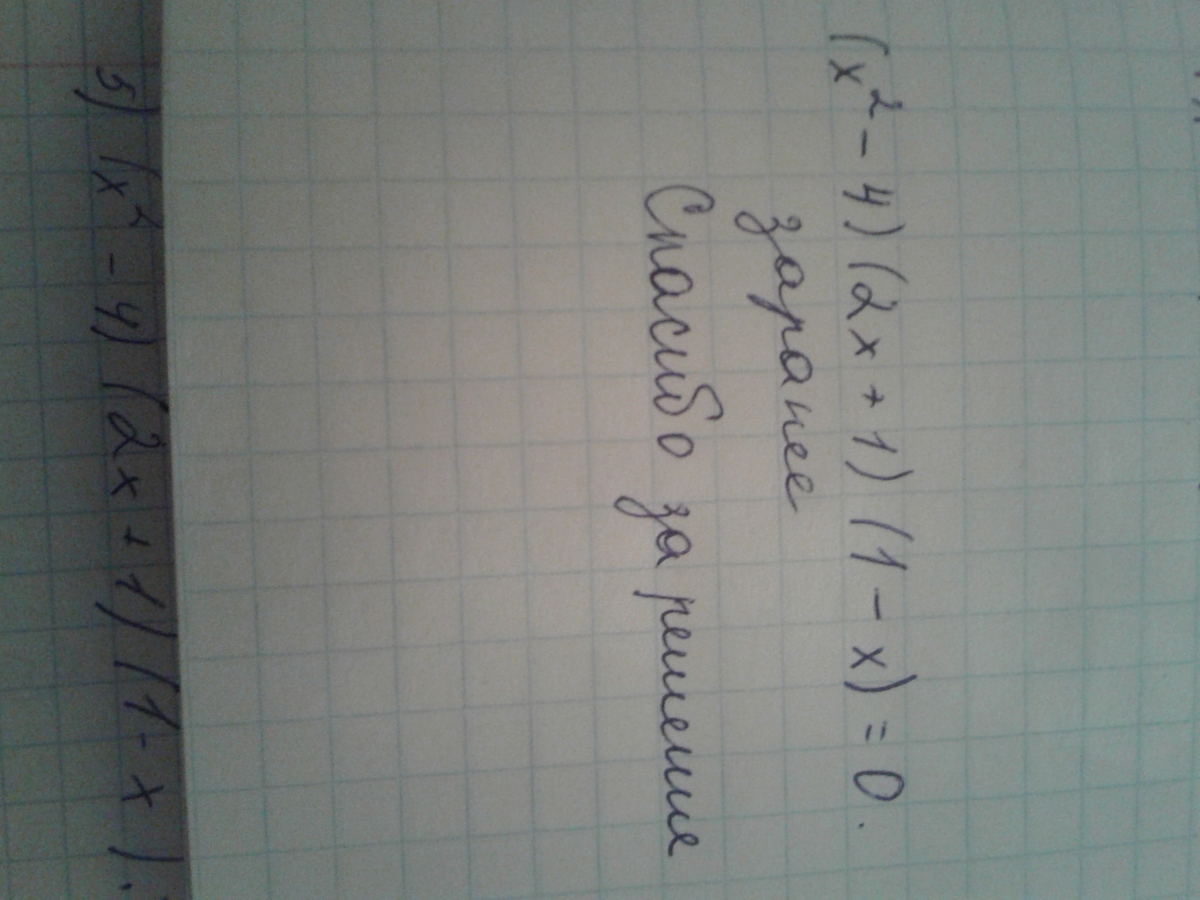 (x² - 4) (2x + 1) (1 - x) = 0.
заранее
Спасибо за решение
5) (x² - 4) (2x + 1) (1 - x).